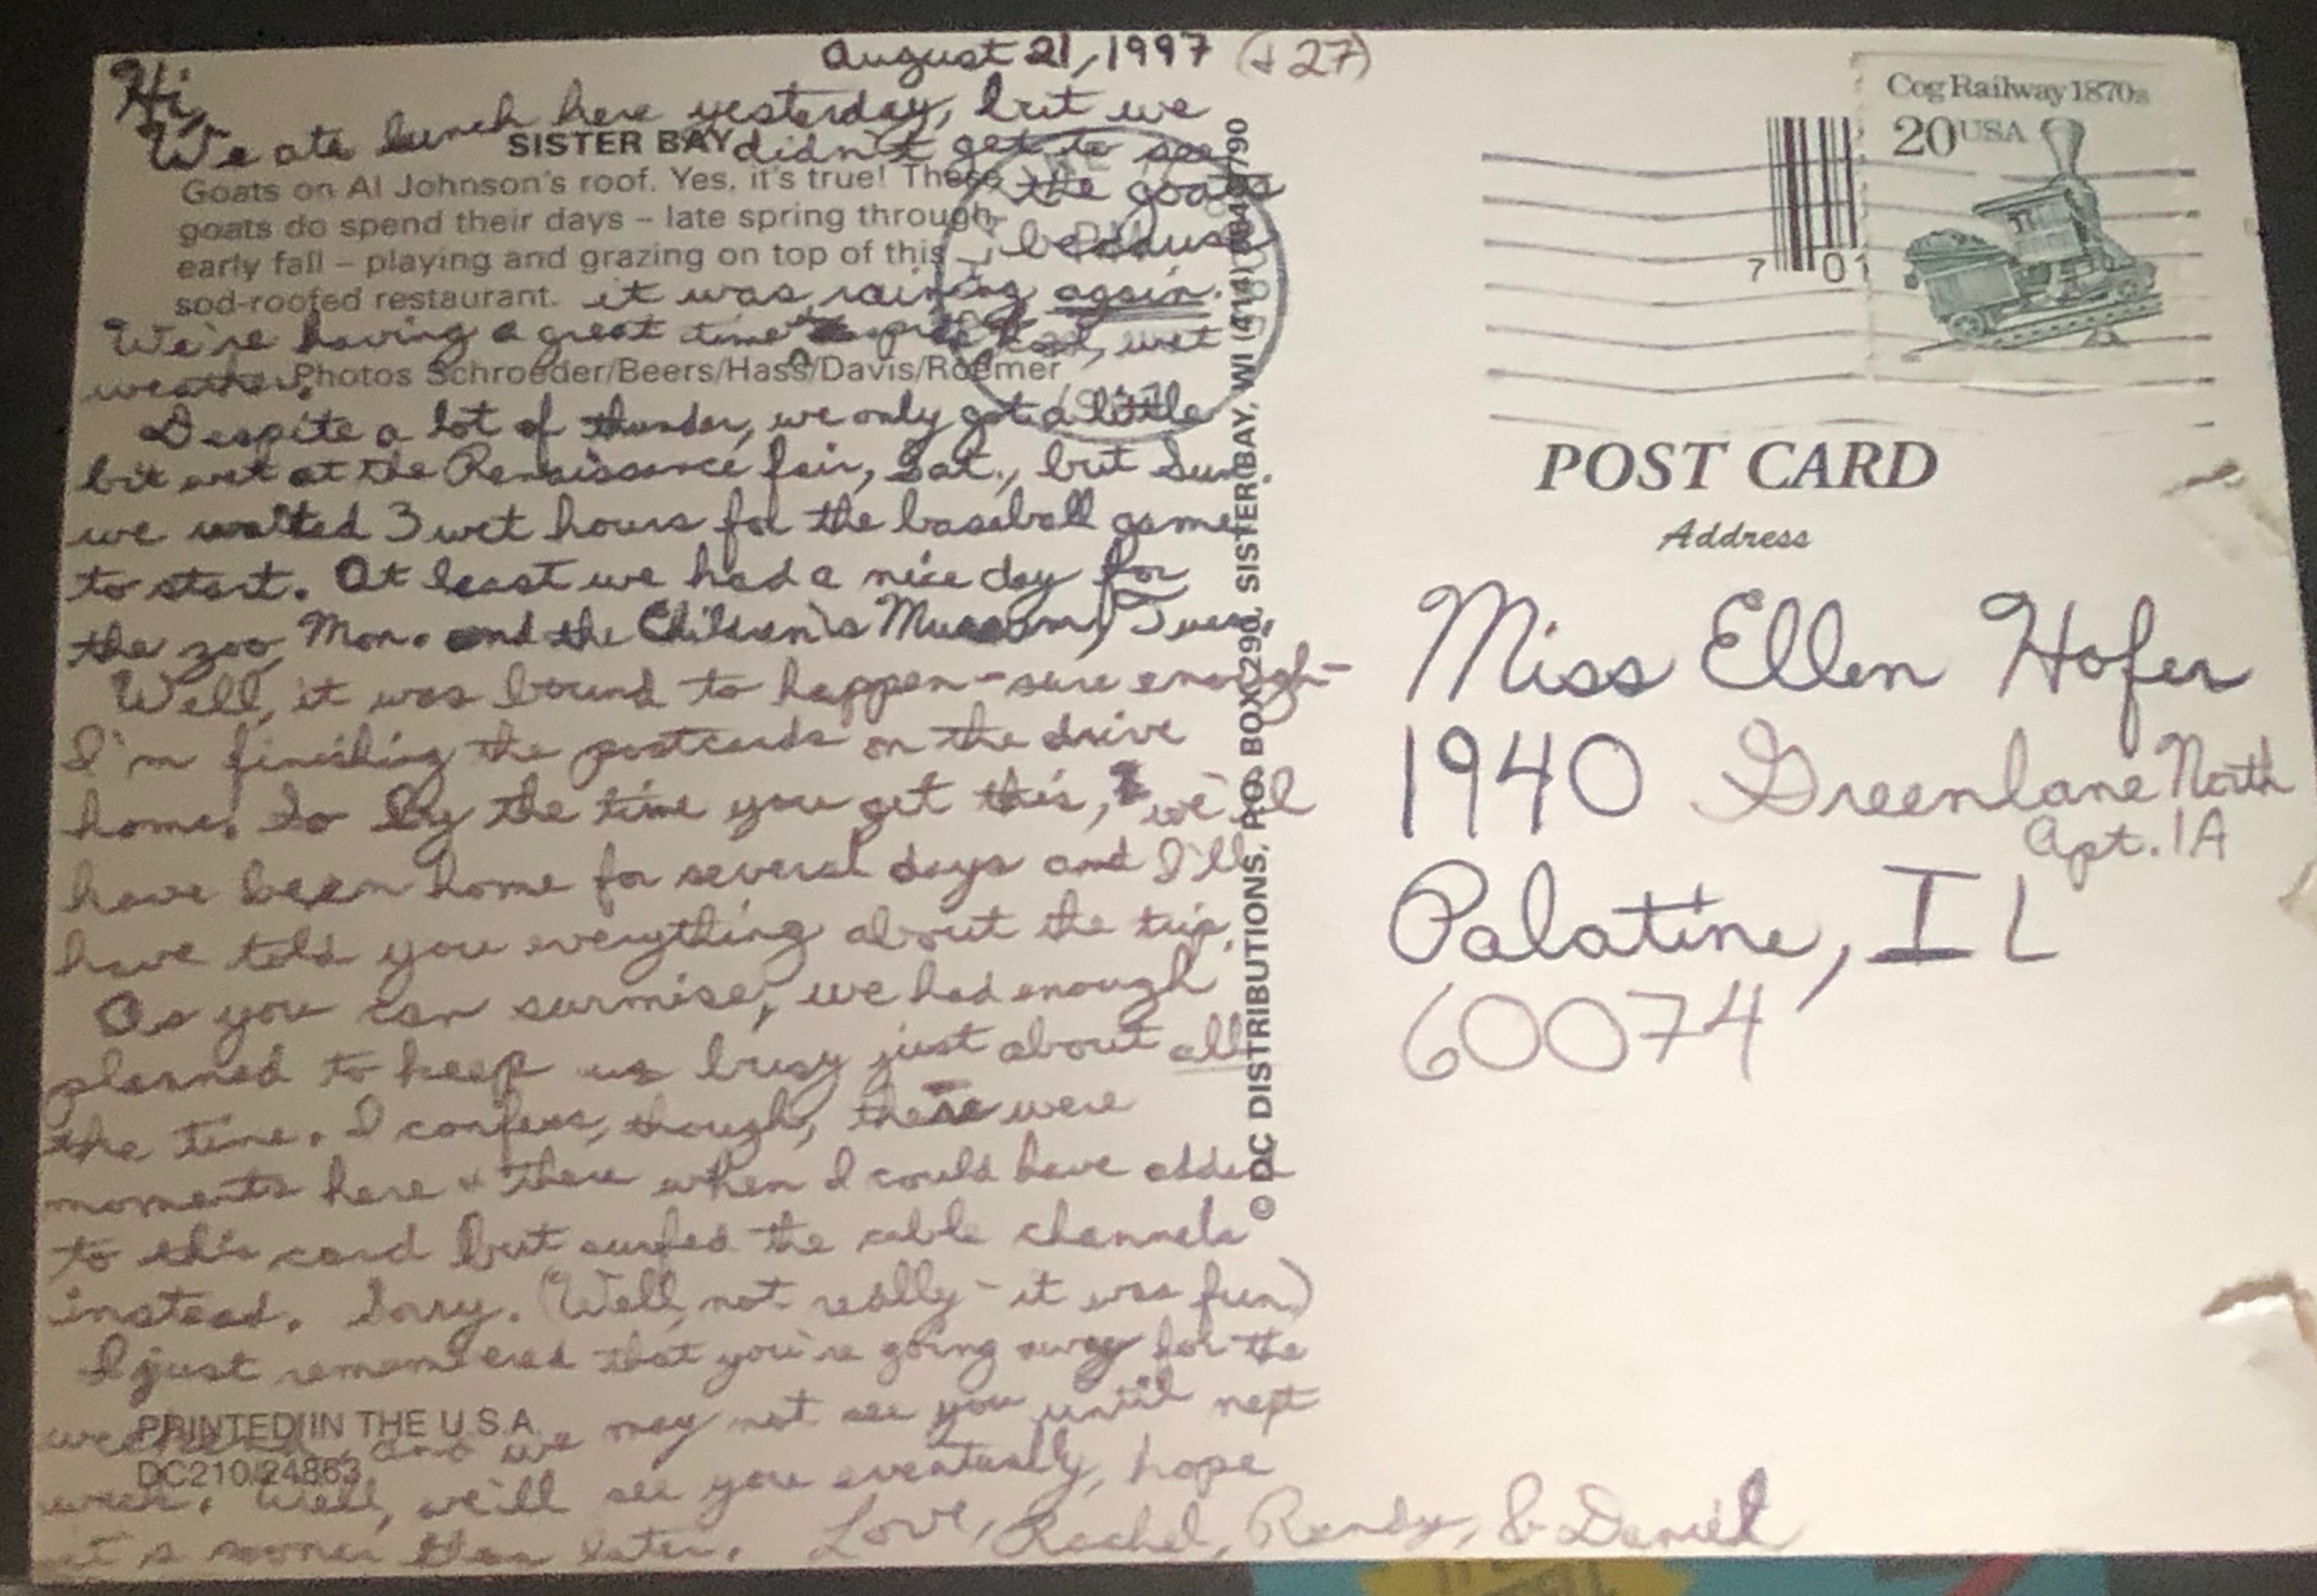 August 21, 1997 (+ 27)
Hi,
We ate lunch here yesterday, but we
SISTER BAY didn't get to see
Goats on Al Johnson's roof. Yes, it's true! These the goats
goats do spend their days – late spring through
early fall – playing and grazing on top of this because
sod-roofed restaurant. it was raining again.
We're having a great time despite wet
weather. Photos Schroeder/Beers/Hass/Davis/Roemer
Despite a lot of thunder, we only got a little
bit wet at the Renaissance fair, Sat., but Sun.
we waited 3 wet hours for the baseball game
to start. At least we had a nice day for
the zoo, Mon. and the Children's Museum, Tues.
Well, it was bound to happen - sure enough -
I'm finishing the postcards on the drive
home. So by the time you get this, we'll
have been home for several days and I'll
have told you everything about the trip.
As you can surmise, we had enough
planned to keep us busy just about all
the time. I confess, though, there were
moments here & there when I could have added
to this card but surfed the cable channels
instead. Sorry. (Well, not really - it was fun.)
I just remembered that you're going away for the
weekend, and we may not see you until next
PRINTED IN THE U.S.A.
DC210/24863
week. Well, we'll see you eventually, hope
it's sooner than later. Love, Rachel, Randy, & Daniel
© DC DISTRIBUTIONS, P.O. BOX 290, SISTER BAY, WI (414)
Cog Railway 1870s
20 USA
7 01
POST CARD
Address
Miss Ellen Hofer
1940 Greenlane North
Apt. 1A
Palatine, IL
60074